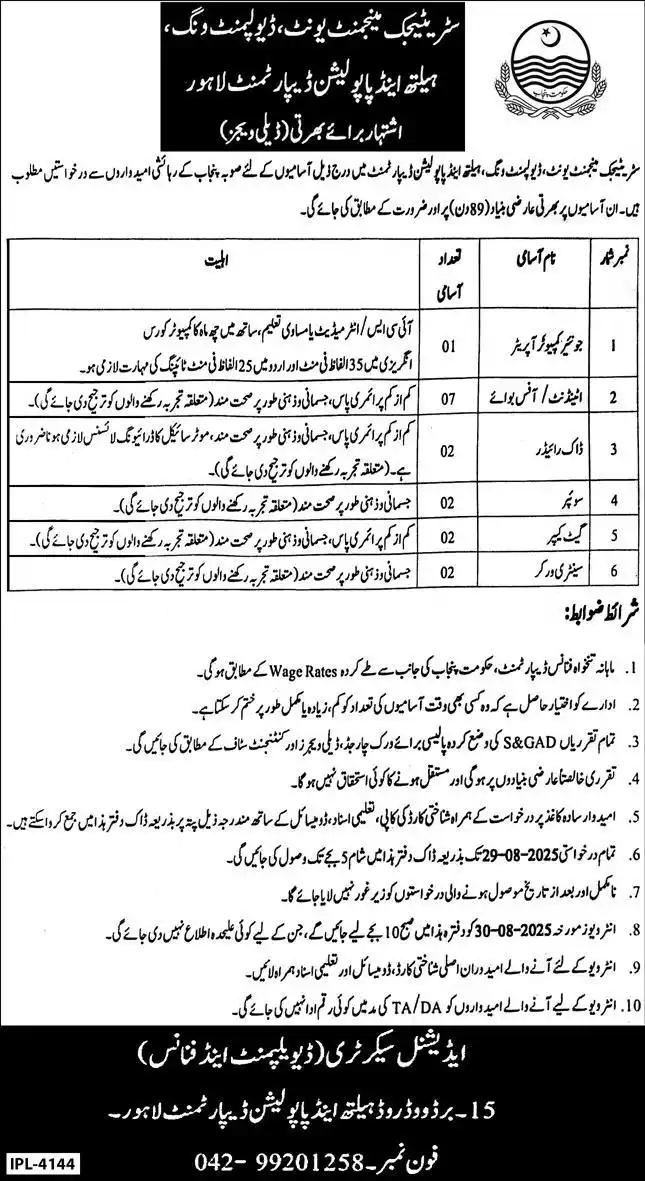 سٹریٹیجک مینجمنٹ یونٹ، ڈیولپمنٹ ونگ،
ہیلتھ اینڈ پاپولیشن ڈیپارٹمنٹ لاہور
اشتہار برائے بھرتی (ڈیلی ویجز)
حکومت پنجاب
سٹریٹیجک مینجمنٹ یونٹ، ڈیولپمنٹ ونگ، ہیلتھ اینڈ پاپولیشن ڈیپارٹمنٹ میں درج ذیل آسامیوں کے لئے صوبہ پنجاب کے رہائشی امیدواروں سے درخواستیں مطلوب
ہیں۔ ان آسامیوں پر بھرتی عارضی بنیاد (89 دن) پر اور ضرورت کے مطابق کی جائے گی۔
نمبر شمار نام آسامی تعداد آسامی اہلیت
1 جونیئر کمپیوٹر آپریٹر 01 آئی سی ایس / انٹرمیڈیٹ یا مساوی تعلیم، ساتھ میں چھ ماہ کا کمپیوٹر کورس
انگریزی میں 35 الفاظ فی منٹ اور اردو میں 25 الفاظ فی منٹ ٹائپنگ کی مہارت لازمی ہو۔
2 اٹینڈنٹ / آفس بوائے 07 کم از کم پرائمری پاس، جسمانی و ذہنی طور پر صحت مند (متعلقہ تجربہ رکھنے والوں کو ترجیح دی جائے گی)۔
3 ڈاک رائیڈر 02 کم از کم پرائمری پاس، جسمانی و ذہنی طور پر صحت مند، موٹر سائیکل کا ڈرائیونگ لائسنس لازمی ہونا ضروری
ہے۔ (متعلقہ تجربہ رکھنے والوں کو ترجیح دی جائے گی)۔
4 سوئپر 02 جسمانی و ذہنی طور پر صحت مند (متعلقہ تجربہ رکھنے والوں کو ترجیح دی جائے گی)۔
5 گیٹ کیپر 02 کم از کم پرائمری پاس، جسمانی و ذہنی طور پر صحت مند (متعلقہ تجربہ رکھنے والوں کو ترجیح دی جائے گی)۔
6 سینٹری ورکر 02 جسمانی و ذہنی طور پر صحت مند (متعلقہ تجربہ رکھنے والوں کو ترجیح دی جائے گی)۔
شرائط ضوابط:
1. ماہانہ تنخواہ فنانس ڈیپارٹمنٹ، حکومت پنجاب کی جانب سے طے کردہ Wage Rates کے مطابق ہوگی۔
2. ادارے کو اختیار حاصل ہے کہ وہ کسی بھی وقت آسامیوں کی تعداد کو کم، زیادہ یا مکمل طور پر ختم کر سکتا ہے۔
3. تمام تقرریاں S&GAD کی وضع کردہ پالیسی برائے ورک چارجڈ، ڈیلی ویجرز اور کنٹنجنٹ سٹاف کے مطابق کی جائیں گی۔
4. تقرری خالصتاً عارضی بنیادوں پر ہوگی اور مستقل ہونے کا کوئی استحقاق نہیں ہوگا۔
5. امیدوار سادہ کاغذ پر درخواست کے ہمراہ شناختی کارڈ کی کاپی، تعلیمی اسناد، ڈومیسائل کے ساتھ مندرجہ ذیل پتہ پر بذریعہ ڈاک دفتر ہذا میں جمع کروا سکتے ہیں۔
6. تمام درخواستی 29-08-2025 تک بذریعہ ڈاک دفتر ہذا میں شام 5 بجے تک وصول کی جائیں گی۔
7. نامکمل اور بعد از تاریخ موصول ہونے والی درخواستوں کو زیر غور نہیں لایا جائے گا۔
8. انٹرویوز مورخہ 30-08-2025 کو دفتر ہذا میں صبح 10 بجے لیے جائیں گے، جن کے لیے کوئی علیحدہ اطلاع نہیں دی جائے گی۔
9. انٹرویو کے لئے آنے والے امیدواران اصلی شناختی کارڈ، ڈومیسائل اور تعلیمی اسناد ہمراہ لائیں۔
10. انٹرویو کے لیے آنے والے امیدواروں کو TA/DA کی مد میں کوئی رقم ادا نہیں کی جائے گی۔
ایڈیشنل سیکرٹری (ڈیویلپمنٹ اینڈ فنانس)
15۔ برڈووڈ روڈ ہیلتھ اینڈ پاپولیشن ڈیپارٹمنٹ لاہور۔
فون نمبر۔ 042- 99201258
IPL-4144